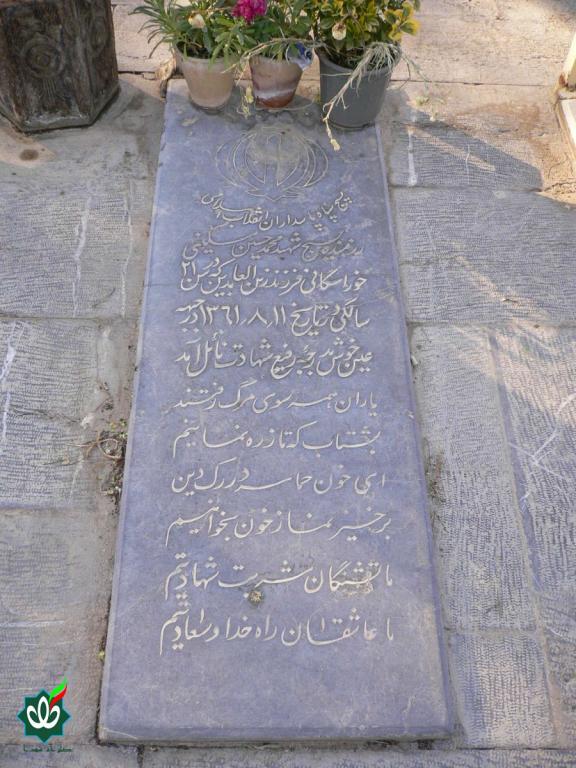 بسیج سپاه پاسداران انقلاب اسلامی
رزمنده بسیج شهید محمد حسین سلیمی
خوراسگانی فرزند زین العابدین که در سن ۲۱
سالگی در تاریخ ۱۳۶۱،۸،۱۱ در جبهه
عین خوش به درجه رفیع شهادت نائل آمد
یاران همه سوی مرگ رفتند
بشتاب که تا ز ره نمانیم
ای خون حماسه در رگ دین
برخیز نماز خون بخوانیم
ما تشنگان شربت شهادتیم
ما عاشقان راه خدا و سعادتیم